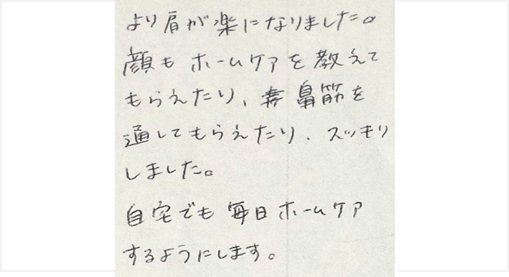 より肩が楽になりました。
顔もホームケアを教えて
もらえたり、鼻筋を
通してもらえたり、スッキリ
しました。
自宅でも毎日ホームケア
するようにします。